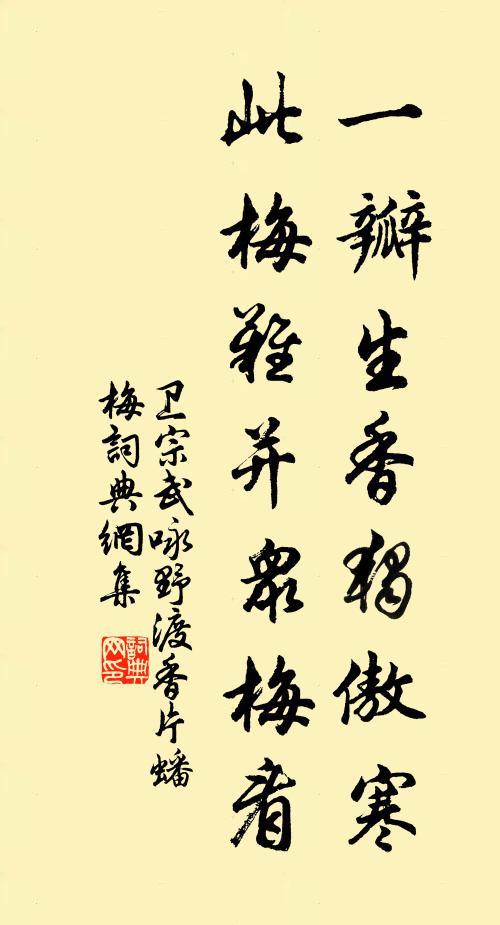 一瓣生香獨傲寒
此梅難并眾梅看
卫宗武咏野渡香片蟠
梅詞典網集
詞典
网印